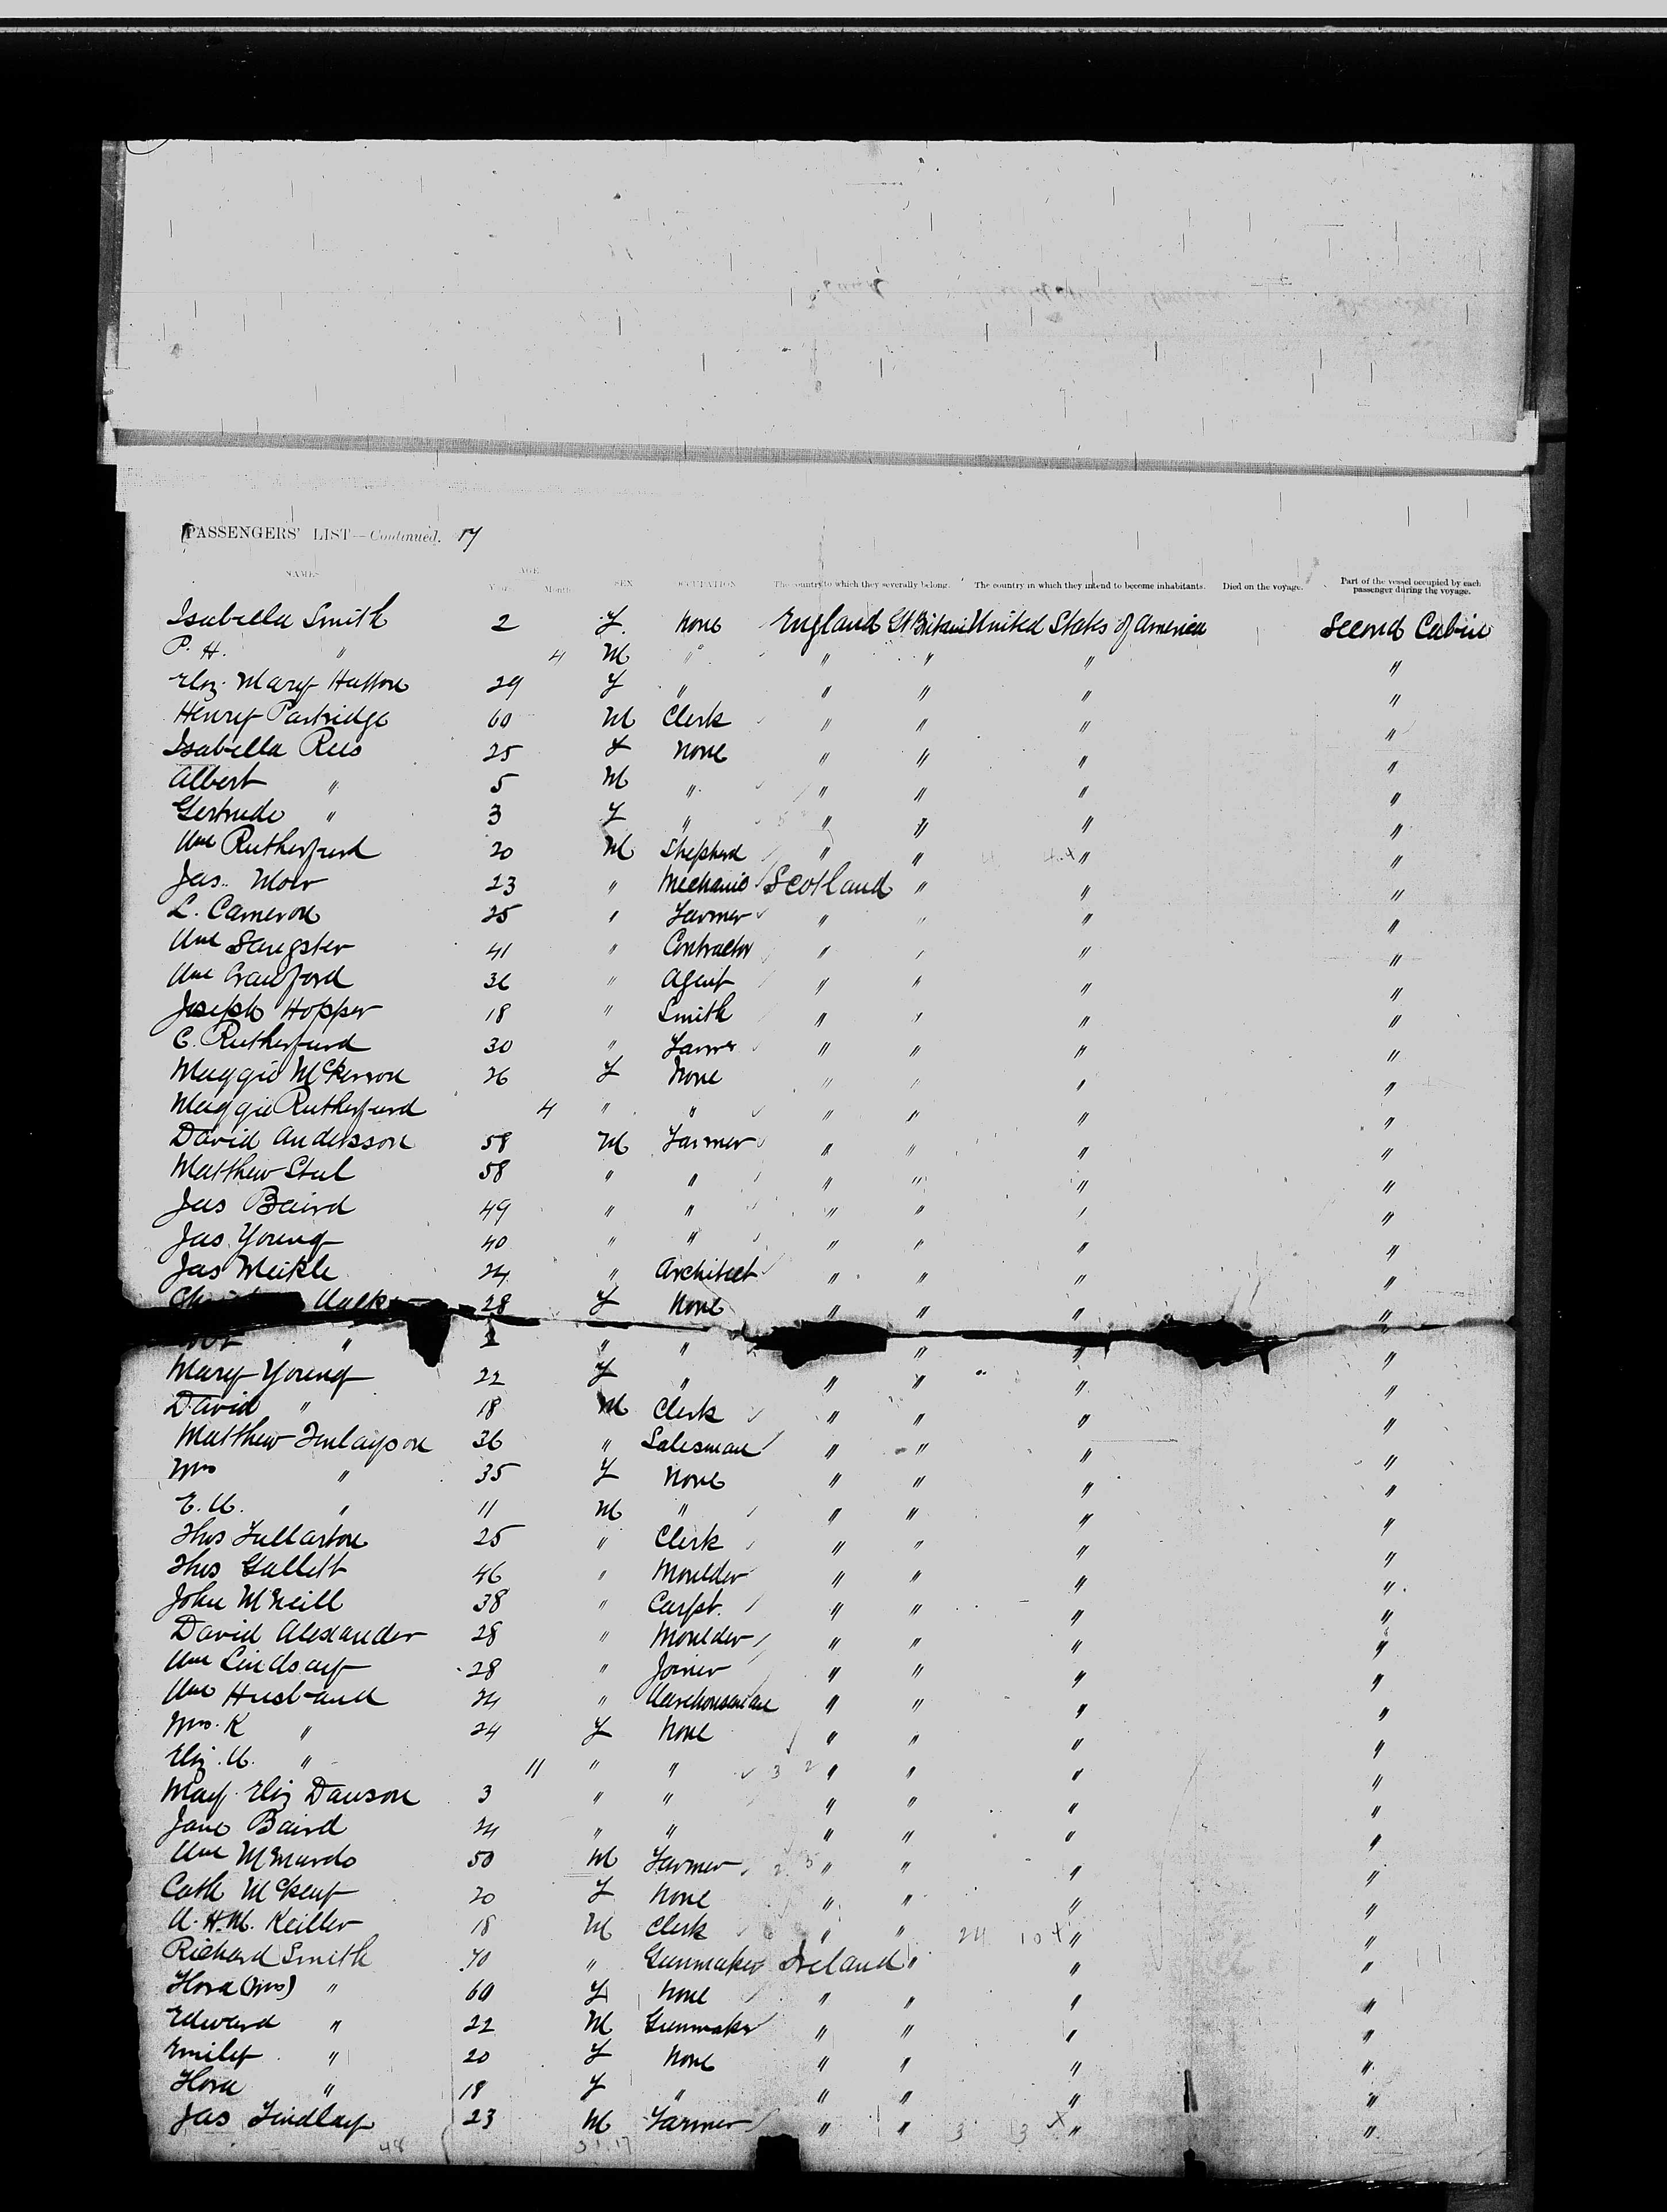 PASSENGERS' LIST—Continued. 17
NAMES AGE SEX OCCUPATION The country to which they severally belong. The country in which they intend to become inhabitants. Died on the voyage. Part of the vessel occupied by each passenger during the voyage.
Years Months
Isabella Smith 2 F. None England Gt Britain United States of America Second Cabin
P. H. " 4 M " " " " "
Eliz. Mary Hutton 29 F " " " " "
Henry Partridge 60 M Clerk " " " "
Isabella Rees 25 F None " " " "
Albert " 5 M " " " " "
Gertrude " 3 F " " " " "
Wm Rutherfurd 20 M Shepherd " " " "
Jas. Moir 23 " Mechanic Scotland " " "
L. Cameron 25 " Farmer " " " "
Wm Sangster 41 " Contractor " " " "
Wm Crawford 36 " Agent " " " "
Joseph Hopper 18 " Smith " " " "
C. Rutherfurd 30 " Farmer " " " "
Maggie McKerron 26 F None " " " "
Maggie Rutherfurd 4 " " " " " "
David Andersson 58 M Farmer " " " "
Matthew Steel 58 " " " " " "
Jas Baird 49 " " " " " "
Jas Young 40 " " " " " "
Jas Meikle 24 " Architect " " " "
28 F None " " " "
" " " " " "
Mary Young 22 F " " " " "
David " 18 M Clerk " " " "
Matthew Finlayson 36 " Salesman " " " "
Mrs " 35 F None " " " "
E. A. " 11 M " " " " "
Thos Fullarton 25 " Clerk " " " "
Thos Gullett 46 " Moulder " " " "
John McNeill 38 " Carpt. " " " "
David Alexander 28 " Moulder " " " "
Wm Lindsay 28 " Joiner " " " "
Wm Husband 24 " Warehouseman " " " "
Mrs. K " 24 F None " " " "
Eliz. A. " 11 " " " " " "
May Eliz Dawson 3 " " " " " "
Jane Baird 24 " " " " " "
Wm McMurdo 50 M Farmer " " " "
Cath McKay 20 F None " " " "
A. H. M. Keiller 18 M Clerk " " 24 10 X " "
Richard Smith 70 " Gunmaker Ireland " " "
Flora (Mrs) " 60 F None " " " "
Edward " 22 M Gunmaker " " " "
Emily " 20 F None " " " "
Flora " 18 F " " " " "
Jas Findlay 23 M Farmer " " 3 13 X " "
48